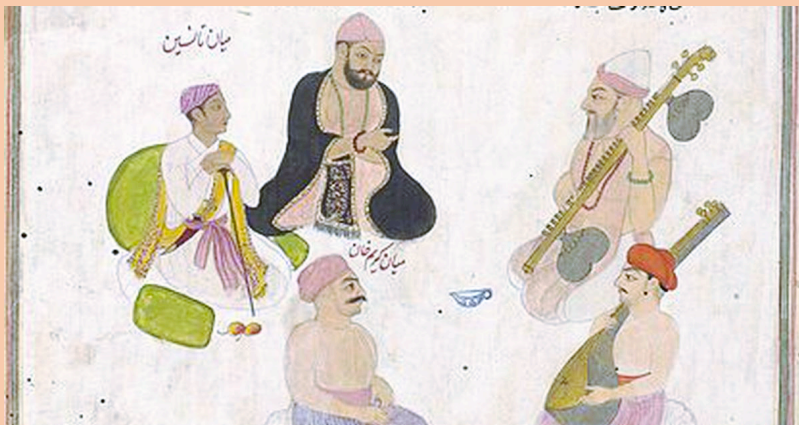 میان تانسین
میان کریم خان